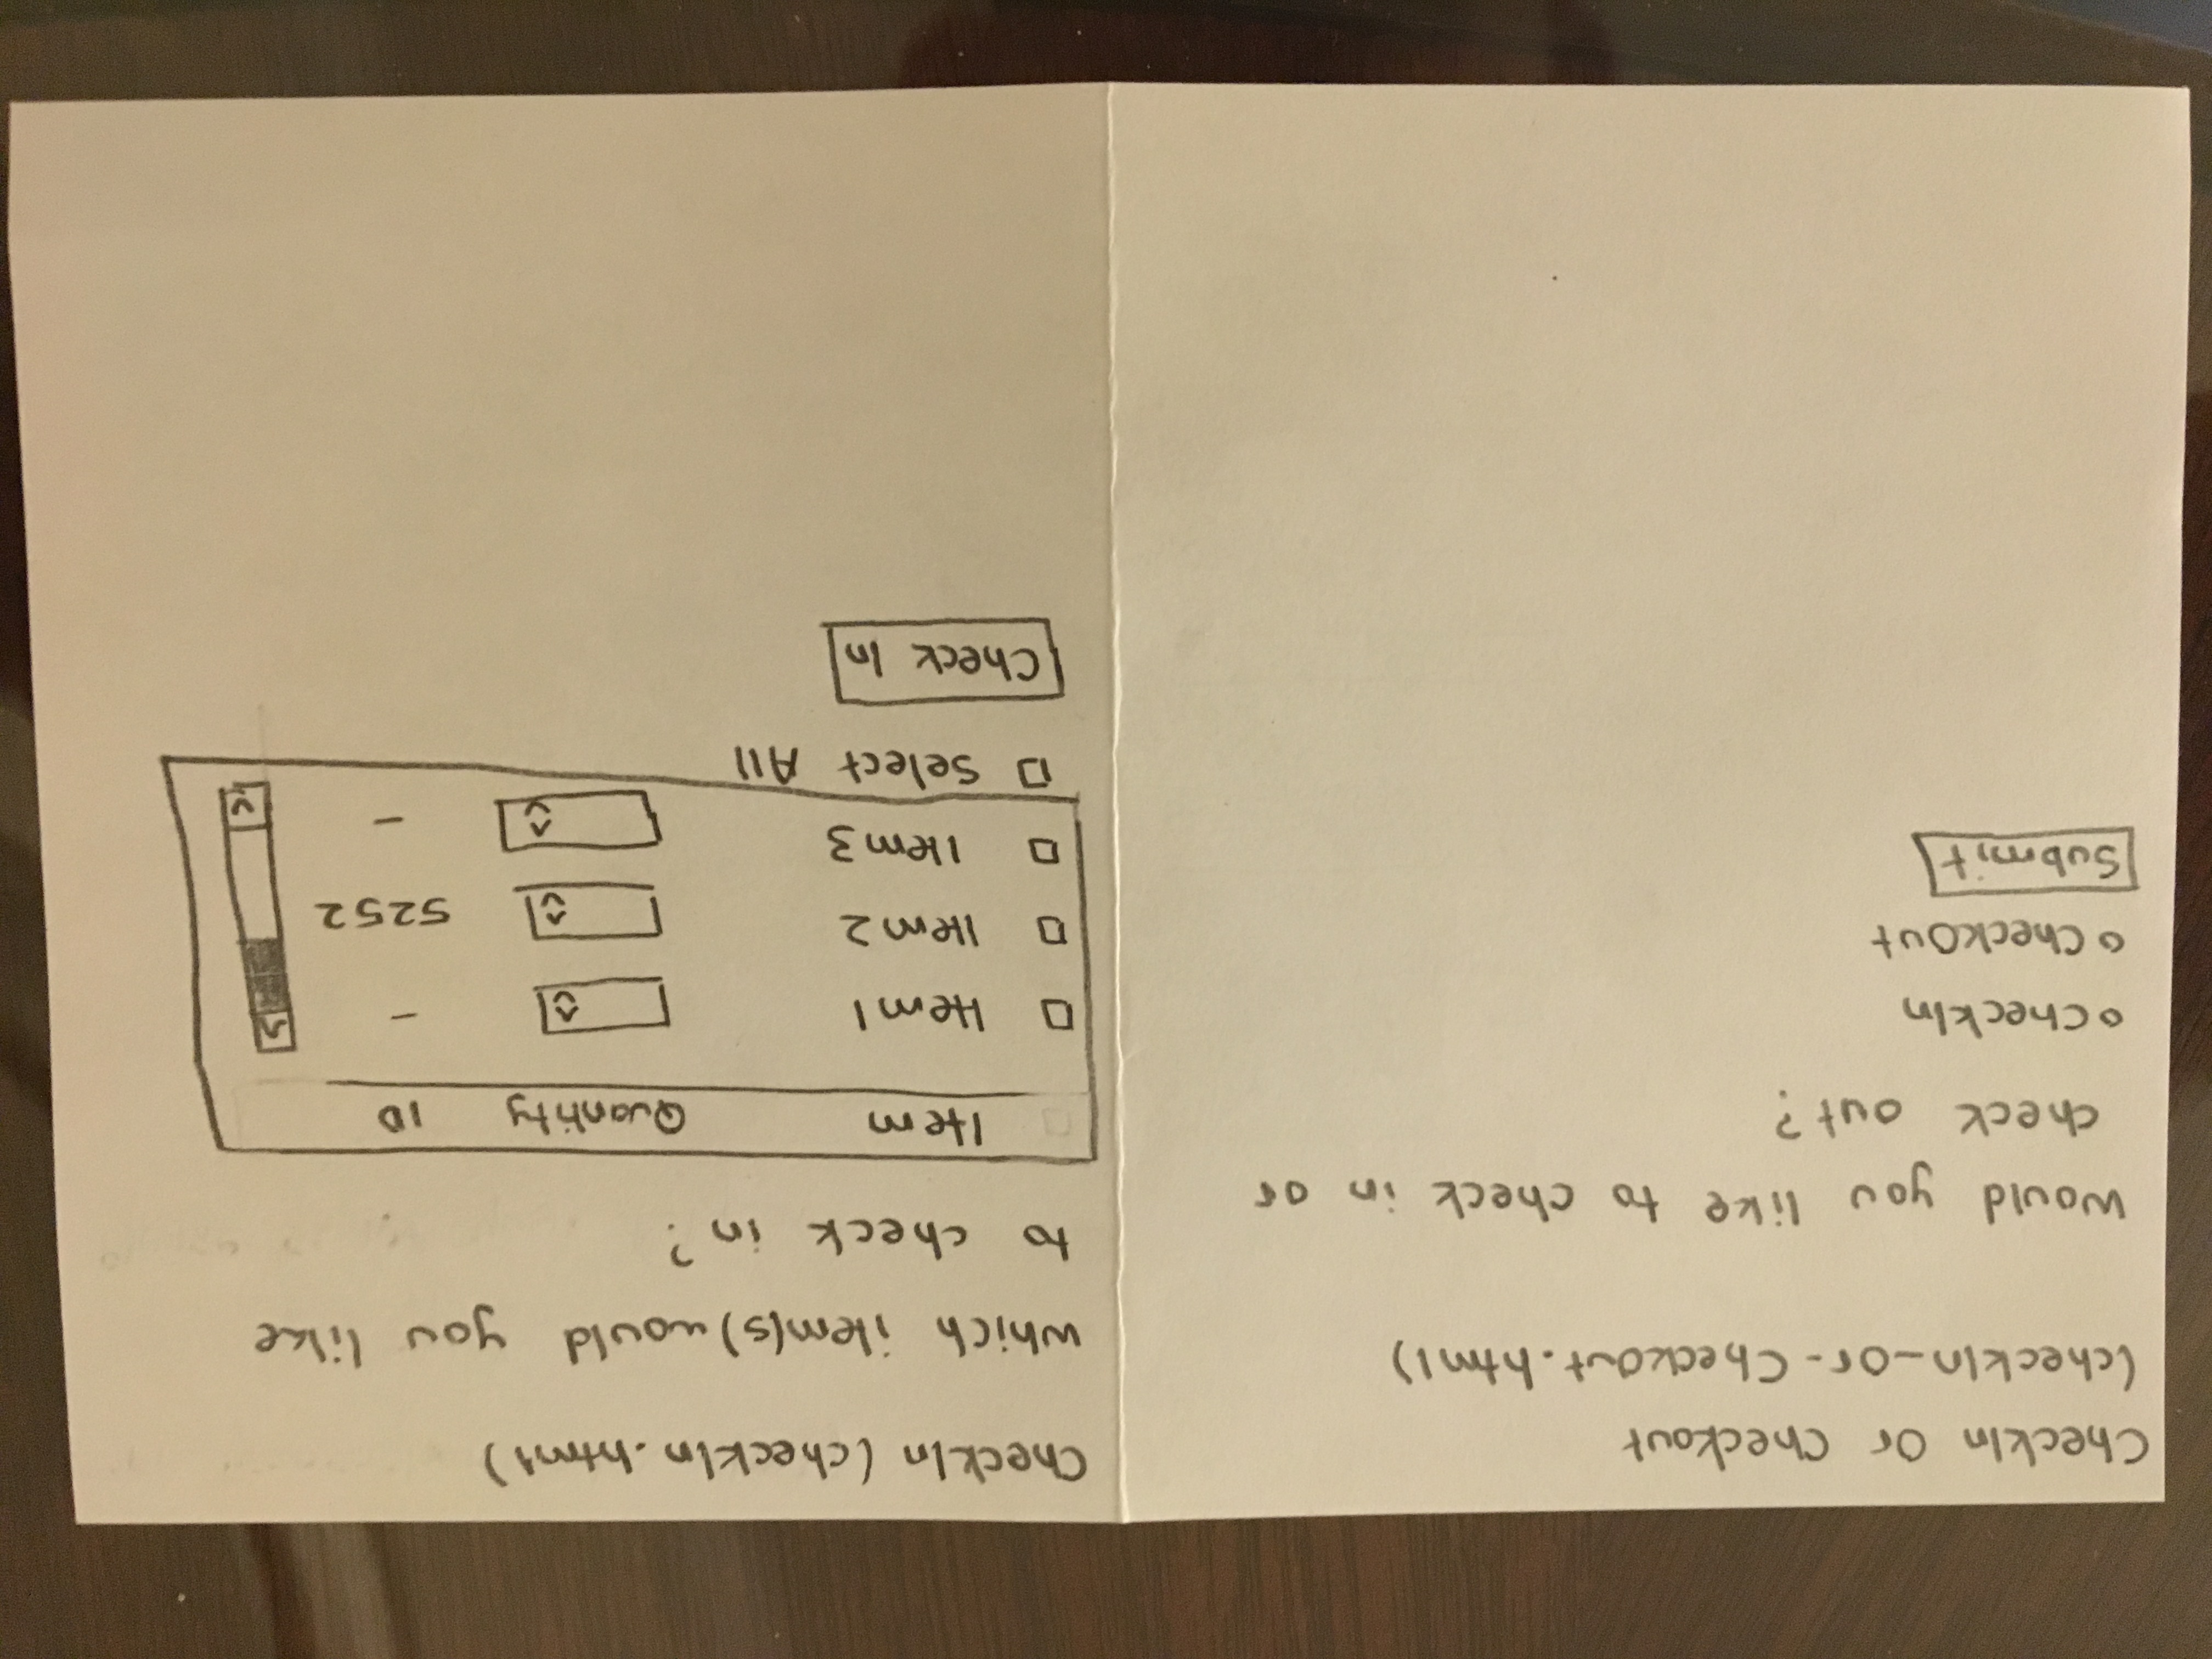 CheckIn Or Checkout
(checkIn_or_CheckOut.html)
Would you like to check in or
check out?
CheckIn
CheckOut
Submit
CheckIn (checkIn.html)
which item(s) would you like
to check in?
Item Quantity ID
Item1 -
Item2 5252
Item3 -
Select All
Check In